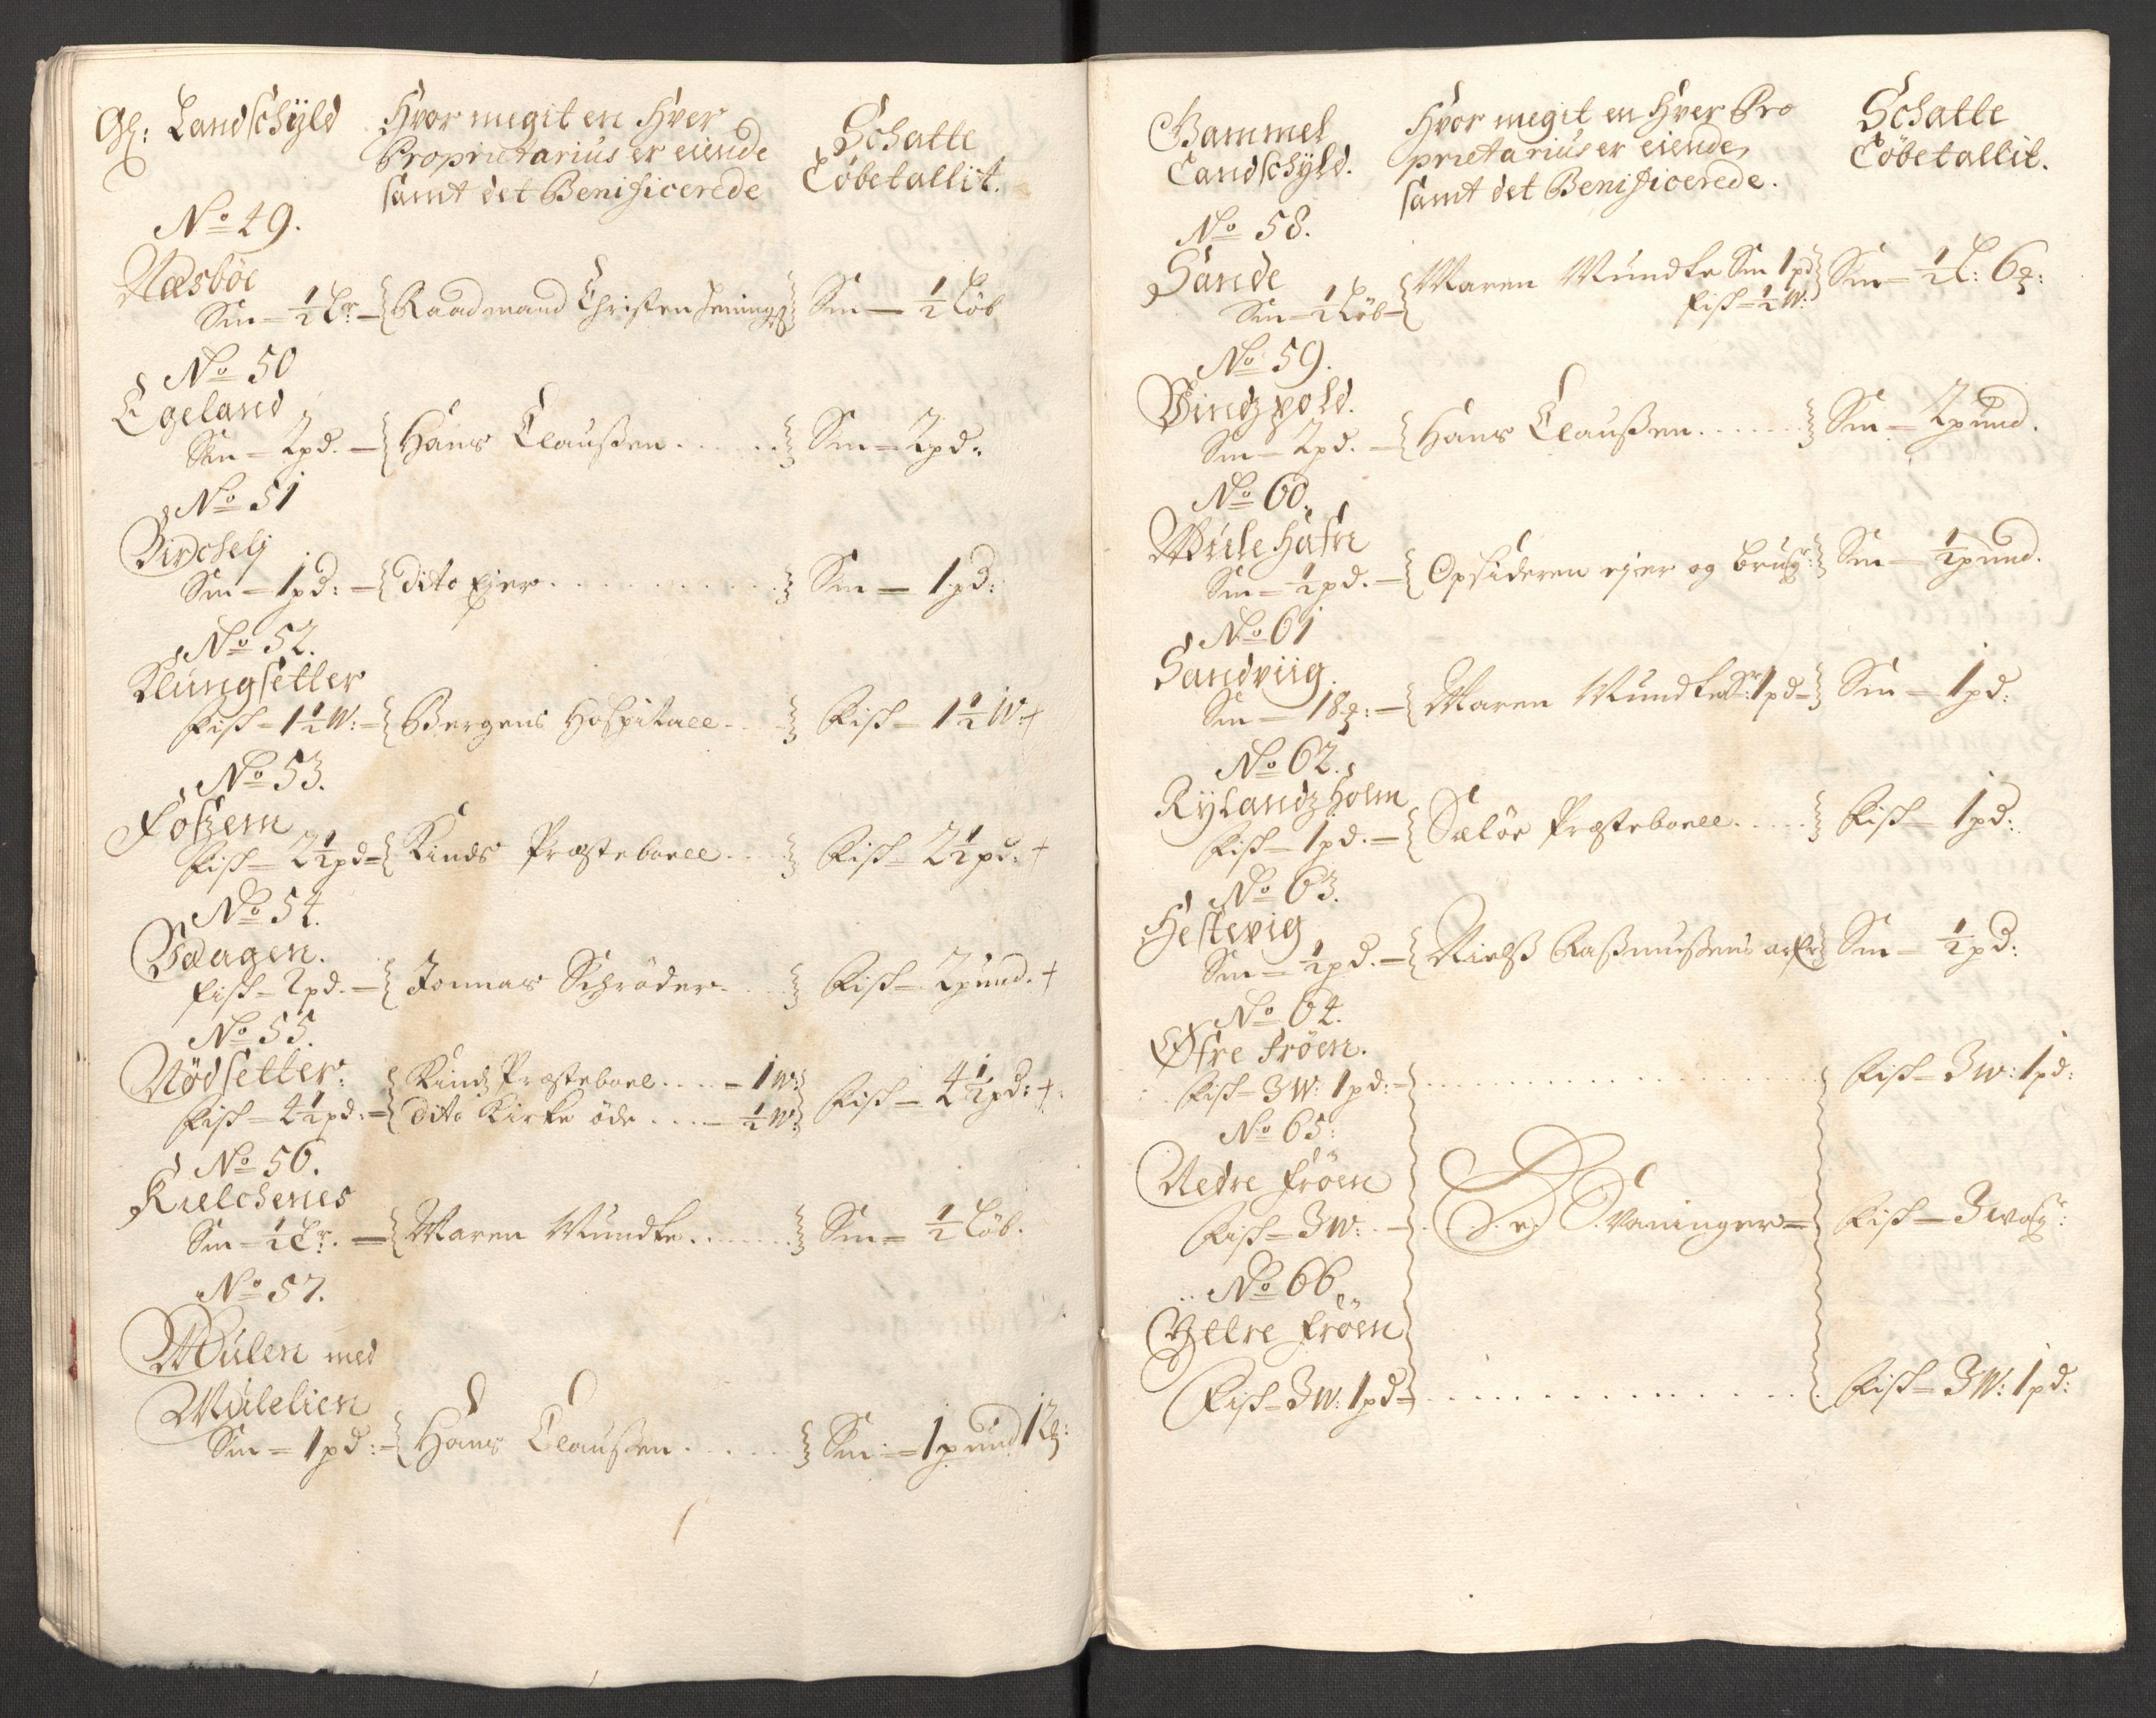 Gl: Landschÿld
Hvor megit en Hver
Proprietarius er eiende
samt det Benificerede
Schatte
Løbetallit.
No 49.
Næsbøe
Sm = ½ Lr. – Raadmand Christen Jenings Sm – ½ Løb
No 50
Egeland
Sm = 2 pd. – Hans Claussen . . . . . Sm = 2 pd.
No 51
Birchelj
Sm = 1 pd: – dito Ejer . . . . . . . . . Sm = 1 pd:
No 52.
Klungsetter
Fisk = 1½ W: – Bergens Hospitall . . . Fisk = 1½ W: +
No 53.
Foszem
Fisk = 2½ pd = Kinds Præsteboell . . . Fisk = 2½ pd: +
No 54.
Vaagen.
Fisk = 2 pd. – Jonnas Schrøder . . . Fisk = 2 pund. +
No 55.
Nødsetter:
Kindz Præsteboel . . . . – 1 W:
Fisk = 4½ pd: = dito Kirke øde . . . . – ½ W: Fisk – 4½ pd: +
No 56.
Kielchenes
Sm = ½ Lr. – Maren Mundke . . . . . . Sm = ½ Løb.
No 57.
Mulen med
Mulelien
Sm = 1 pd: – Hans Claussen . . . . . Sm: = 1 pund 12 :
Gammel
Landschÿld.
Hvor megit en Hver Pro
prietarius er eiende,
samt det Benificerede.
Schatte
Løbetallit.
No 58.
Sande
Sm = ½ Løb – Maren Mundke Sm 1 pd Sm = ½ L: 6 :
Fisk = ½ W:
No 59.
Vindzpold.
Sm – 2 pd. – Hans Claussen . . . . . . Sm – 2 pund.
No 60.
Mule Hafn
Sm = ½ pd. – Opsideren ejer og brugr: Sm – ½ pund.
No 61
Sandviig.
Sm – 18 : – Maren Mundke Sr: 1 pd – Sm – 1 pd:
No 62.
Rÿlandz Holm
Fisk = 1 pd. – Sæløe Præsteboell . . . . . Fisk – 1 pd:
No 63.
Hestevig
Sm = ½ pd. – Nielss Rassmussens arfr Sm – ½ pd:
No 64.
Øfre Frøen.
Fisk = 3 W: 1 pd: – . . . . . . . . . . . . . Fisk – 3 W: 1 pd:
No 65:
Nedre Frøen
Fisk – 3 W: – . . Vaninger = Fisk – 3 wogr:
No 66.
Yttre Frøen
Fisk = 3 W: 1 pd = . . . . . . . . . . . . . Fisk – 3 W: 1 pd: